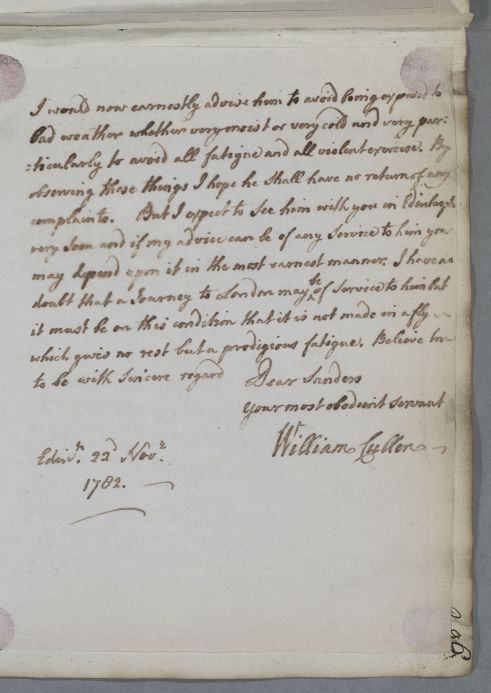 I would now earnestly advise him to avoid being exposed to
bad weather whether very moist or very cold and very par-
-ticularly to avoid all fatigue and all violent exercise. By
observing these things I hope he shall have no return of any
complaints. But I expect to see him with you in Edinburgh
very soon and if my advice can be of any service to him you
may depend upon it in the most earnest manner. I have no
doubt that a Journey to London may be of service to him but
it must be on this condition that it is not made in a fly
which gives no rest but a prodigious fatigue. Believe me
to be with sincere regard Dear Sanders
Your most obedient servant
William Cullen
Edinr. 22d Novr.
1782.